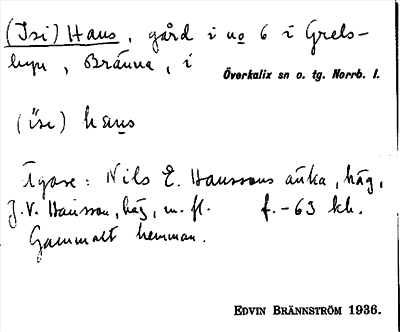 (Isi) Hans, gård i no 6 i Grels-
byn, Bränna, i
Överkalix sn o. tg. Norrb. l.
(isi) hans
Ägare: Nils E. Hanssons änka, häg,
J. V. Hansson, häg, m. fl. f.-63 kh.
Gammalt hemman.
EDVIN BRÄNNSTRÖM 1936.